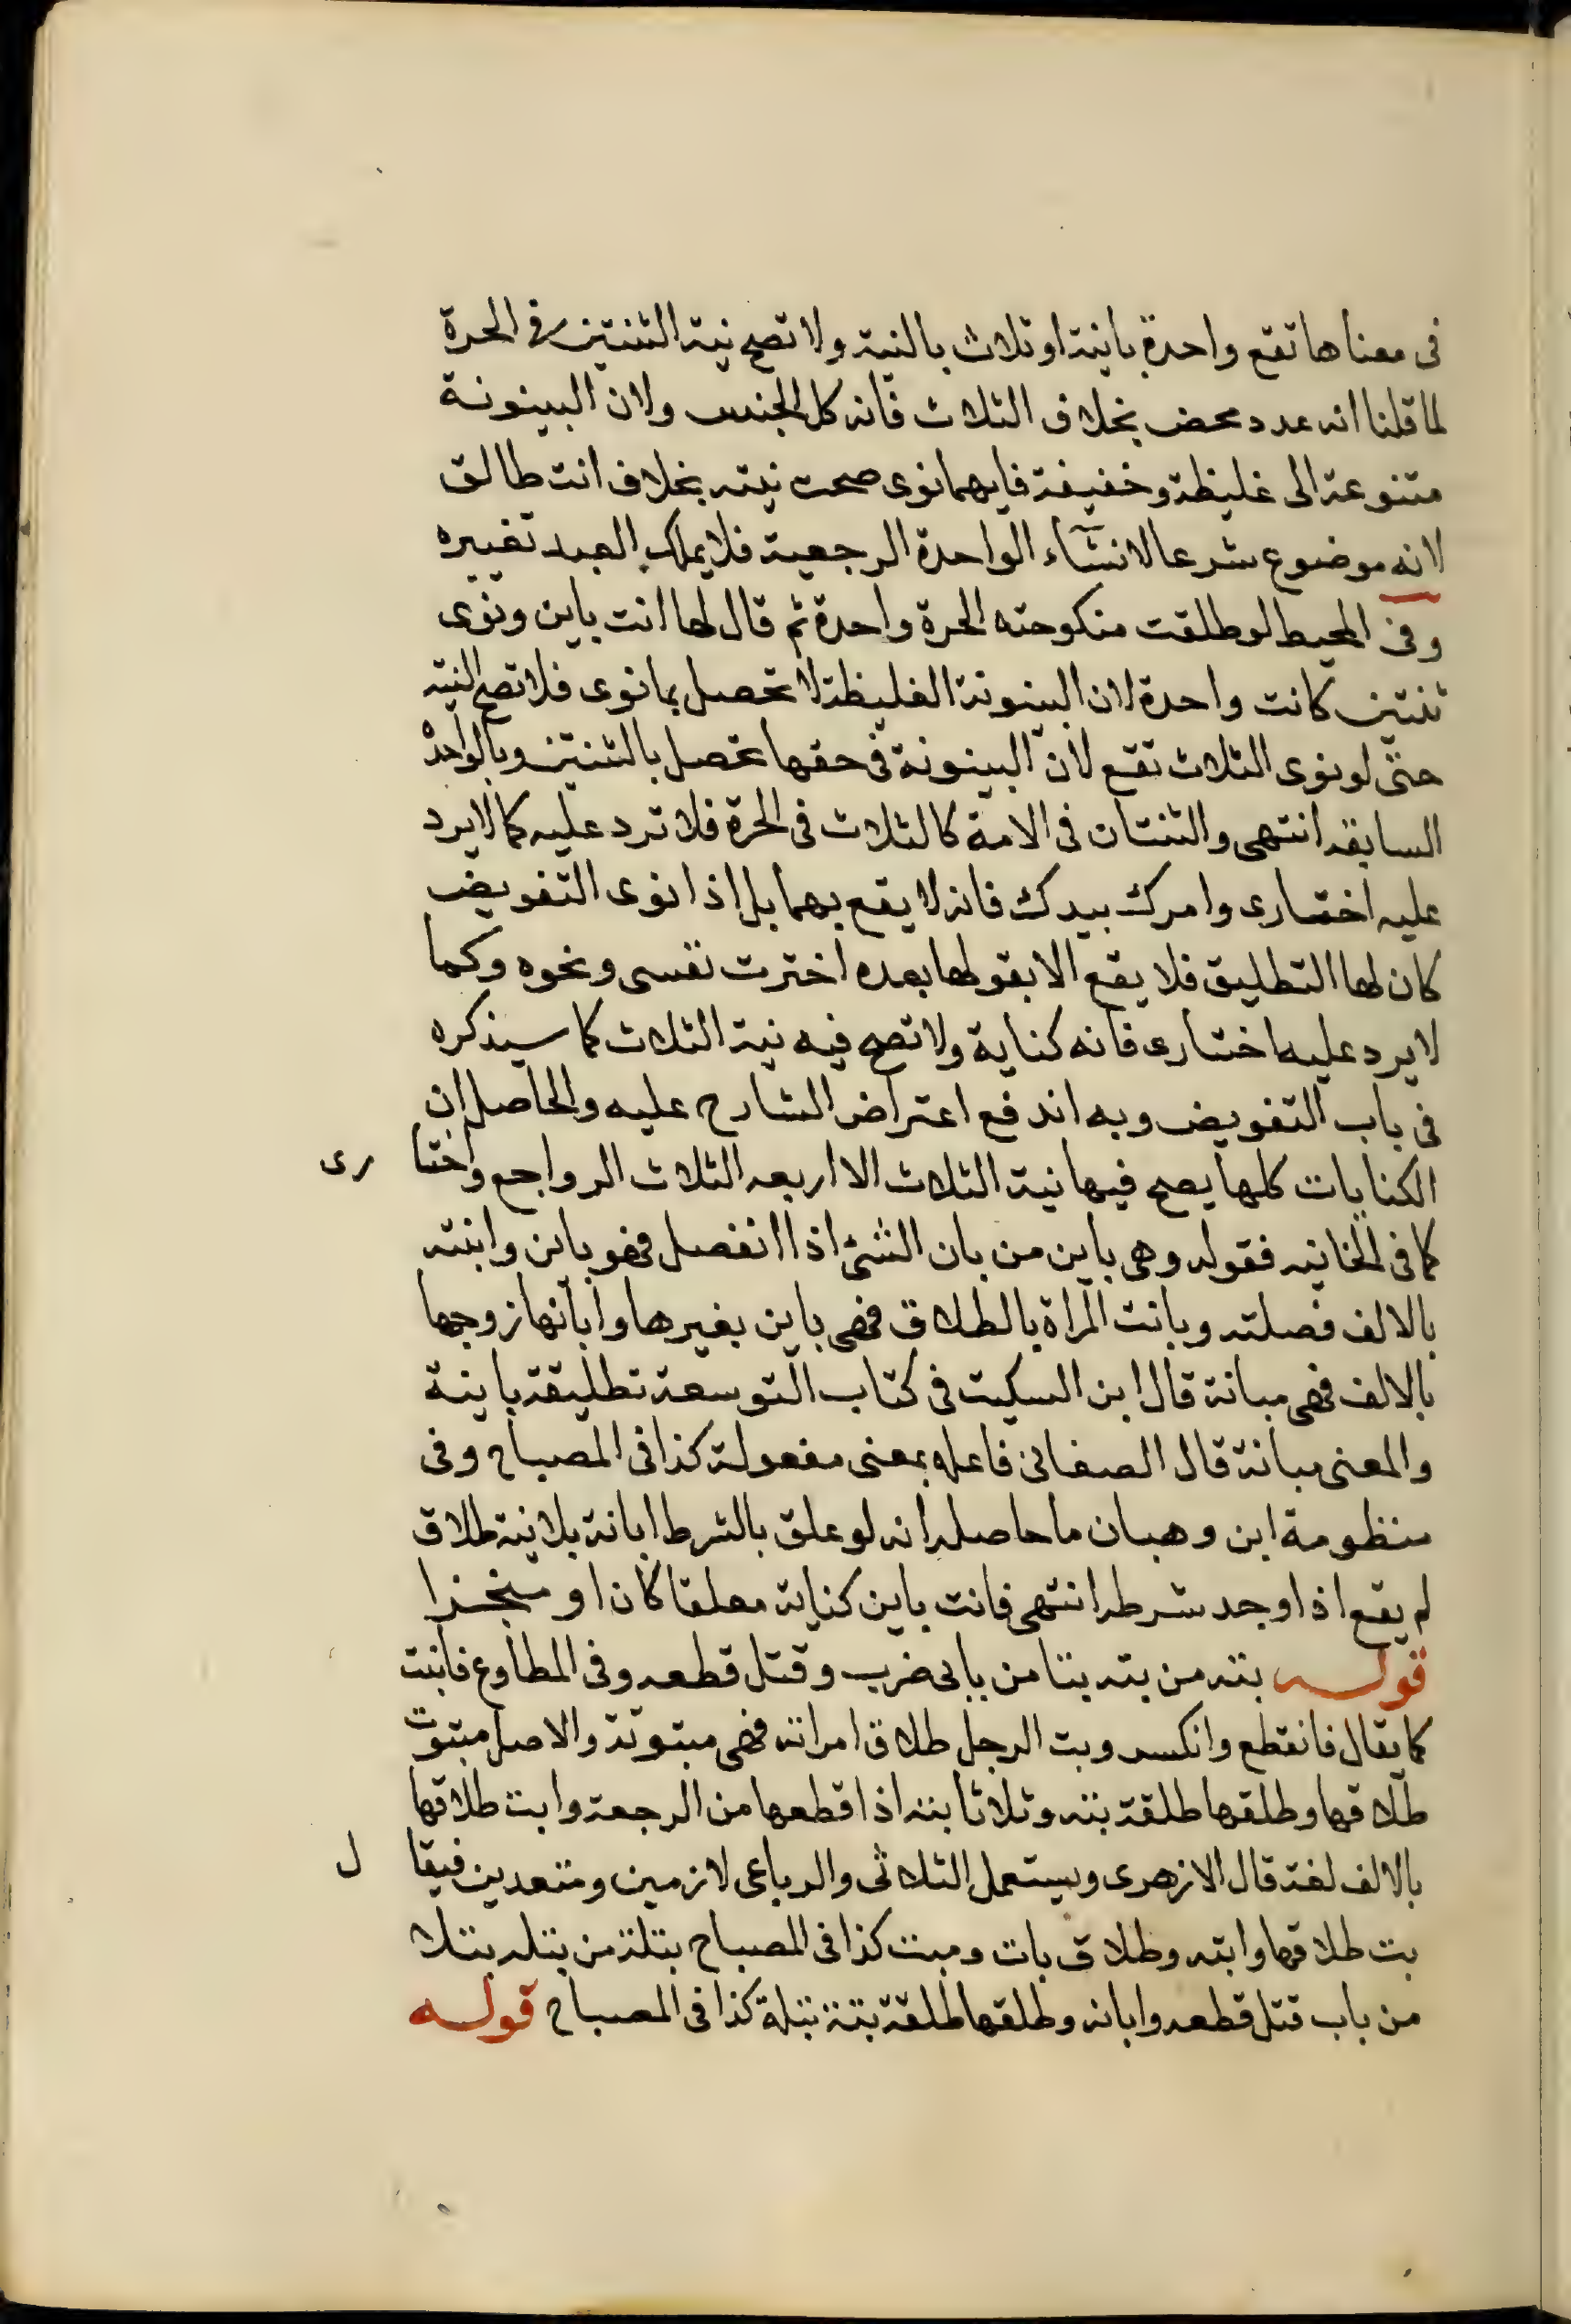 فى معناها تقع واحدة باينة او ثلاث بالنية ولا تصح نية الثنتين فى الحرة
لما قلنا انه عدد محض بخلاف الثلاث فانه كل الجنس ولان البينونة
متنوعة الى غليظة وخفيفة فايهما نوى صحت نيته بخلاف انت طالق
لانه موضوع شرعا لانشآء الواحدة الرجعية فلا يملك العبد تغييره
وفى المحيط لو طلقت منكوحته الحرة واحدة ثم قال لها انت باين ونوى
ثنتين كانت واحدة لان البينونة الغليظة لا تحصل بما نوى فلا تصح النية
حتى لو نوى الثلاث تقع لان البينونة فى حقها تحصل بالثنتين وبالواحدة
السابقة انتهى والثنتان فى الامة كالثلاث فى الحرة فلا ترد عليه كما لا يرد
عليه اختارى وامرك بيدك فانه لا يقع بهما بل اذا نوى التفويض
كان لها التطليق فلا يقع الا بقولها بعده اخترت نفسى ونحوه وكما
لا يرد عليه اختارى فانه كناية ولا تصح فيه نية الثلاث كما سيذكره
فى باب التفويض وبه اندفع اعتراض الشارح عليه والحاصل ان
الكنايات كلها يصح فيها نية الثلاث الا اربعه الثلاث الرواجع واختا رى
كما فى الخانيه فقوله وهى باين من بان الشئ اذا انفصل فهو باين وابنته
بالالف فصلته وبانت المراة بالطلاق فهى باين بغيرها وابانها زوجها
بالالف فهى مبانة قال ابن السكيت فى كتاب التوسعة تطليقة باينة
والمعنى مبانة قال الصغانى فاعله بمعنى مفعولة كذا فى المصباح وفى
منظومة ابن وهبان ما حاصله انه لو علق بالشرط ابانة بلا نية طلاق
لم يقع اذا وجد شرطه انتهى فانت باين كناية معلقا كان او منجزا
قوله بته من بته بتا من بابى ضرب وقتل قطعه وفى المطاوع فانبت
كما يقال فانقطع وانكسر وبت الرجل طلاق امراته فهى مبتوتة والاصل مبتوت
طلاقها وطلقها طلقة بته وثلاثا بته اذا قطعها من الرجعة وابت طلاقها
بالالف لغة قال الازهرى ويستعمل الثلاثى والرباعى لازمين ومتعديين فيقا ل
بت طلاقها وابته وطلاق بات ومبت كذا فى المصباح بتلة من بتله بتلا
من باب قتل قطعه وابانه وطلقها طلقة بتة بتلة كذا فى المصباح قوله